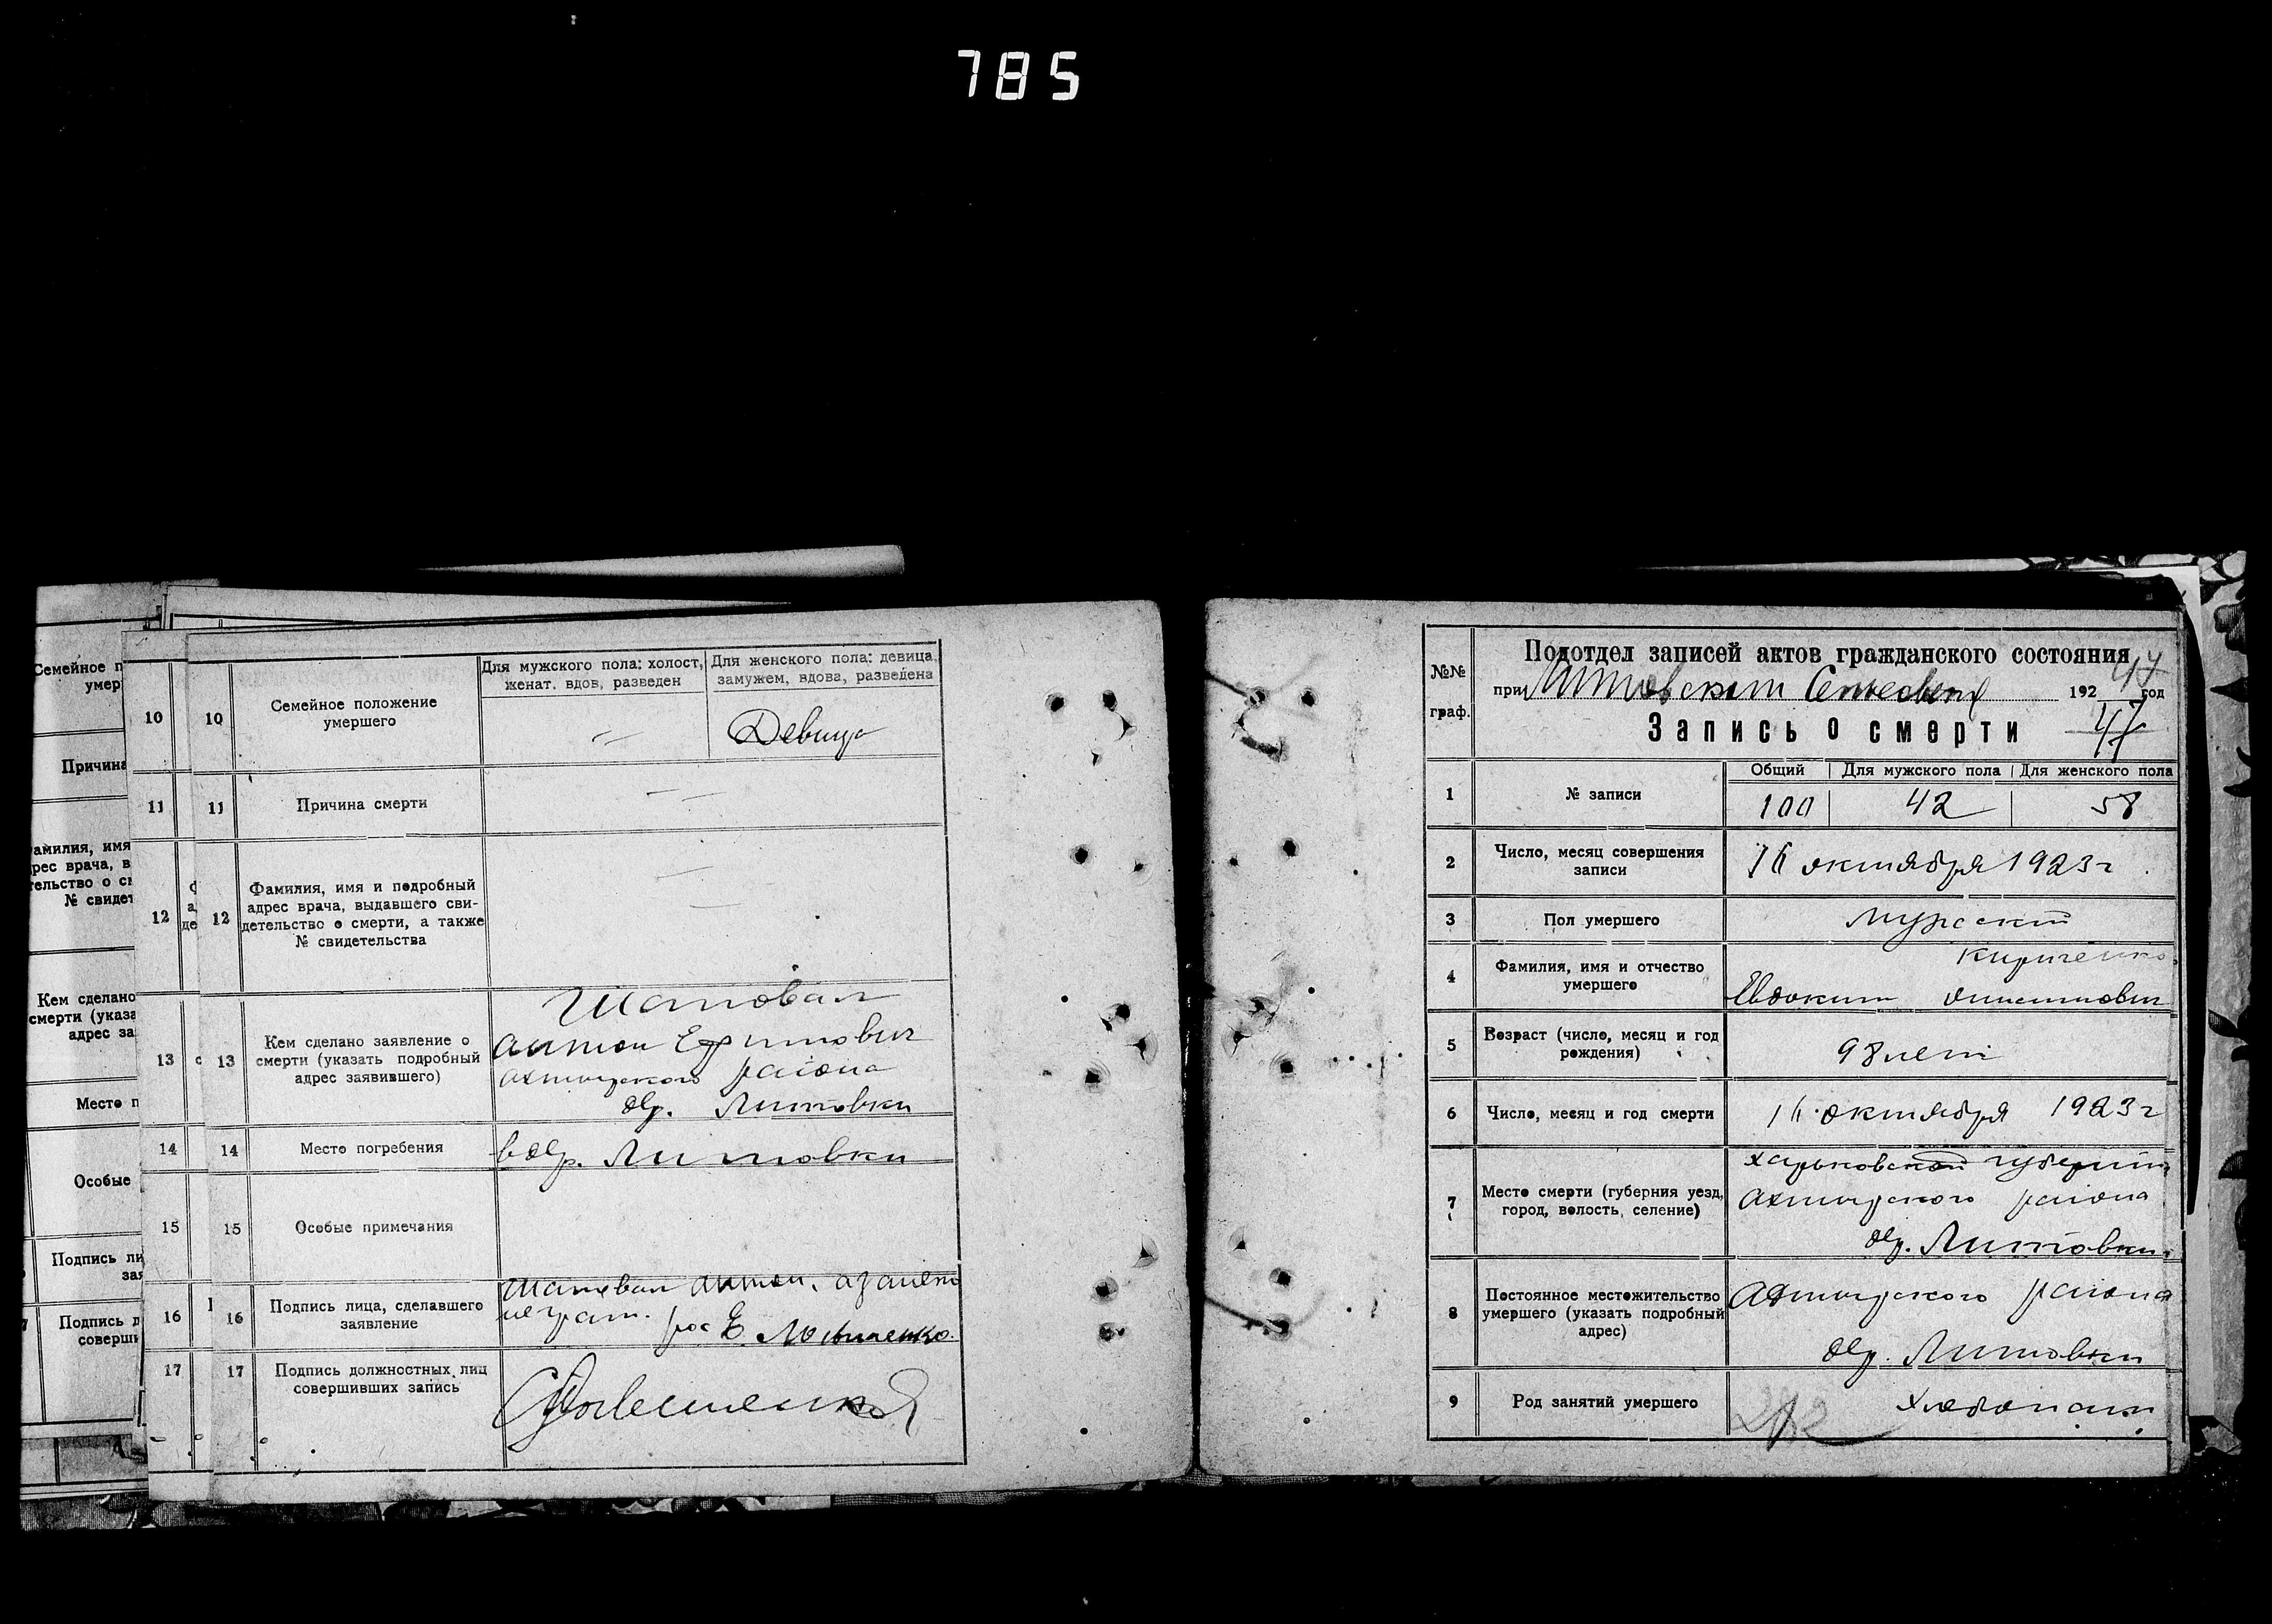 785
Семейное п
умер
Причина
амилия, имя
рес врача, в
тельство о сі
№ свидет
Кем сделано
смерти (указа
адрес за
Место п
Особые
Подпись ли
зая
Подпись д
соверши
10
11
12
13
14
15
16
17
10
Семейное положение
умершего
Для мужского пола: холост,
женат, вдов, разведен
Для женского пола: девица,
замужем, вдова, разведена
Девица
11
Причина смерти
12
Фамилия, имя и подробный
адрес врача, выдавшего сви-
детельство о смерти, а также
№ свидетельства
13
Кем сделано заявление о
смерти (указать подробный
адрес заявившего)
Шаповал
Антон
Ахтырского района
дер. Литовки
14
Место погребения
в дер. Литовки
15
Особые примечания
16
Подпись лица, сделавшего
заявление
Шаповал Антон, а за него
неграм. рос Е.
17
Подпись должностных лиц
совершивших запись
№№
граф.
Подотдел записей актов гражданского состояния
при Литовском Сельсовете 192 год
Запись о смерти
47
1
№ записи
Общий
Для мужского пола
Для женского пола
100
42
58
2
Число, месяц совершения
записи
16 октября 1923 г
3
Пол умершего
мужской
4
Фамилия, имя и отчество
умершего
Кириченко
Евдоким
5
Возраст (число, месяц и год
рождения)
98 лет
6
Число, месяц и год смерти
16 октября 1923 г
7
Место смерти (губерния уезд,
город, волость, селение)
Харьковской губернии
Ахтырского района
дер. Литовки
8
Постоянное местожительство
умершего (указать подробный
адрес)
Ахтырского района
дер. Литовки
9
Род занятий умершего
хлебопаш